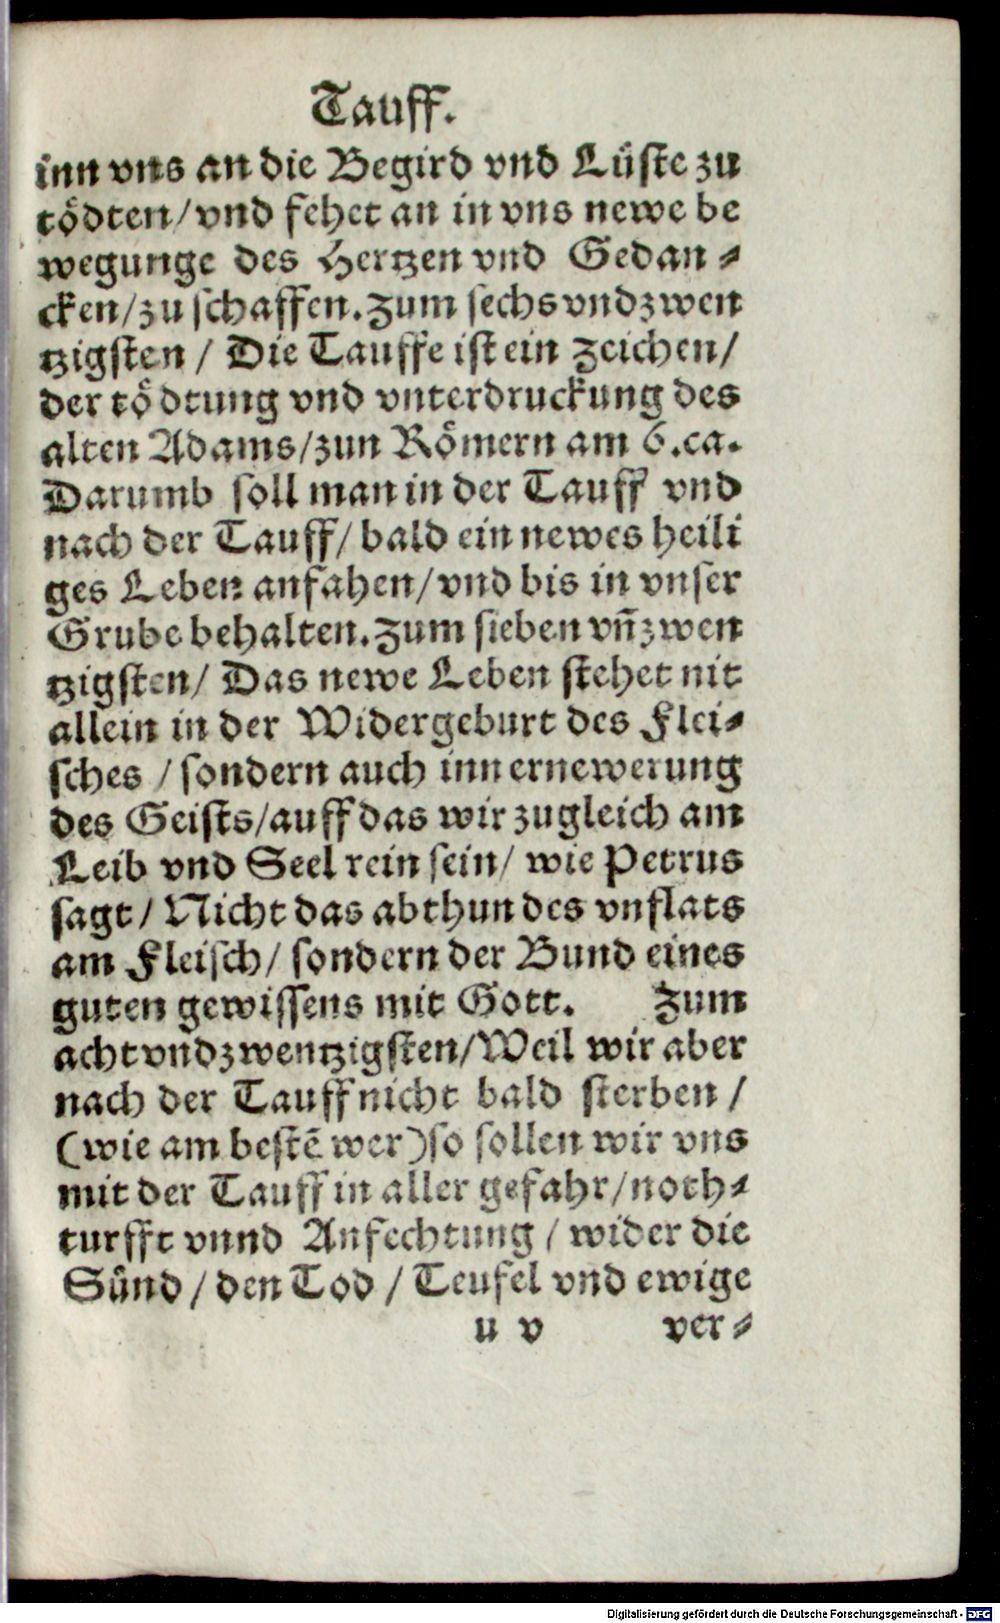 Tauff.
inn vns an die Begird vnd Lüste zu
tödten/vnd fehet an in vns newe be
wegunge des Hertzen vnd Gedan⸗
cken/zu schaffen. Zum sechs vndzwen
tzigsten / Die Tauffe ist ein zeichen/
der tödtung vnd vnterdruckung des
alten Adams/zun Römern am 6. ca.
Darumb soll man in der Tauff vnd
nach der Tauff/ bald ein newes heili
ges Leben anfahen/vnd bis in vnser
Grube behalten. Zum sieben vñzwen
tzigsten/ Das newe Leben stehet nit
allein in der Widergeburt des Flei⸗
sches / sondern auch inn ernewerung
des Geists/auff das wir zugleich am
Leib vnd Seel rein sein/ wie Petrus
sagt/ Nicht das abthun des vnflats
am Fleisch/ sondern der Bund eines
guten gewissens mit Gott. Zum
acht vndzwentzigsten/Weil wir aber
nach der Tauff nicht bald sterben /
(wie am bestẽ wer) so sollen wir vns
mit der Tauff in aller gefahr/noth⸗
turfft vnnd Anfechtung / wider die
Sünd / den Tod / Teufel vnd ewige
u v ver⸗
Digitalisierung gefördert durch die Deutsche Forschungsgemeinschaft - DFG